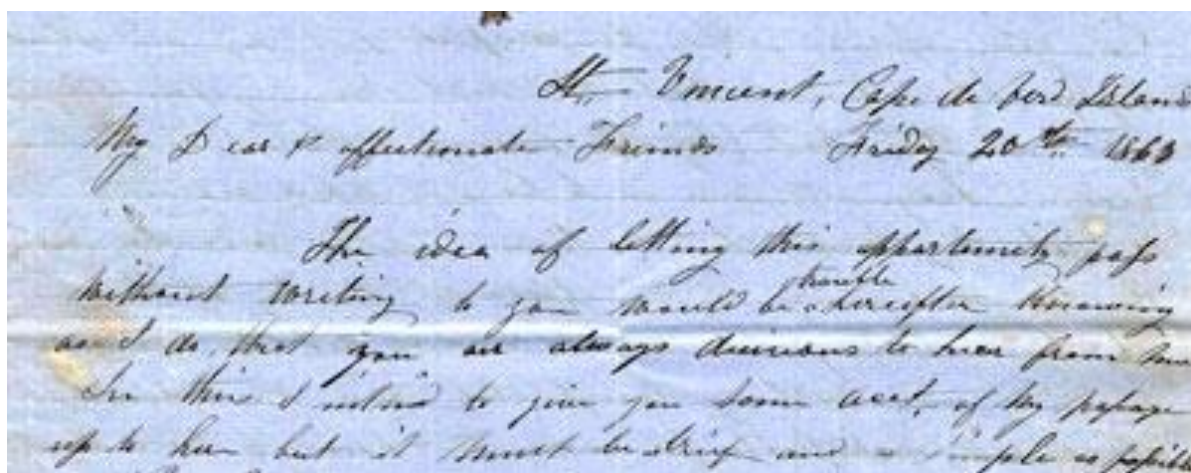 St. Vincent, Cape de Verd Island
My Dear & affectionate Friends Friday 20th 1863
The idea of letting this oppertunity pass
without writing to you would be hereafter knowing
as I do, that you are always to hear from me
In this I intend to give you some acct, of my passage
up to here but it must be brief and simple as possible